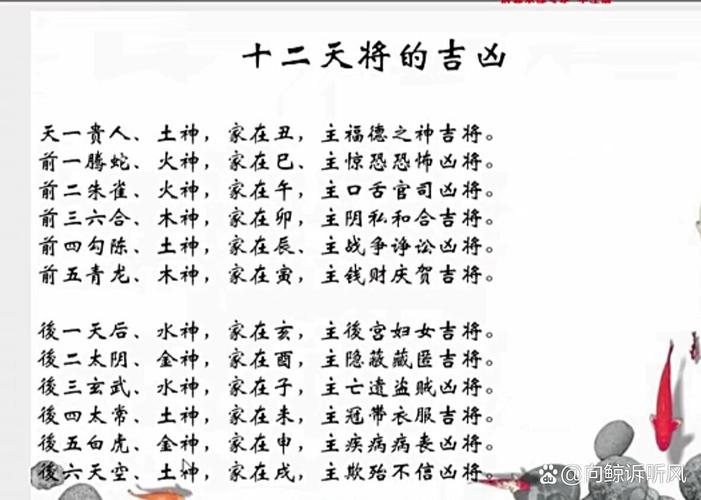 十二天将的吉凶
天一貴人、土神，家在丑，主福德之神吉将。
前一腾蛇、火神，家在巳、主惊恐恐怖凶将。
前二朱雀、火神，家在午，主口舌官司凶将。
前三六合、木神，家在卯、主阴私和合吉将。
前四勾陈、土神，家在辰、主战争诤讼凶将。
前五青龙、木神，家在寅、主钱财庆贺吉将。
後一天后、水神，家在亥，主後宫妇女吉将。
後二太阴、金神，家在酉，主隐蔽藏匿吉将。
後三玄武、水神，家在子，主亡遗盗贼凶将。
後四太常、土神，家在未，主冠带衣服吉将。
後五白虎、金神，家在申，主疾病病丧凶将。
後六天空、土神，家在戌，主欺殆不信凶将。
向鲸诉听风